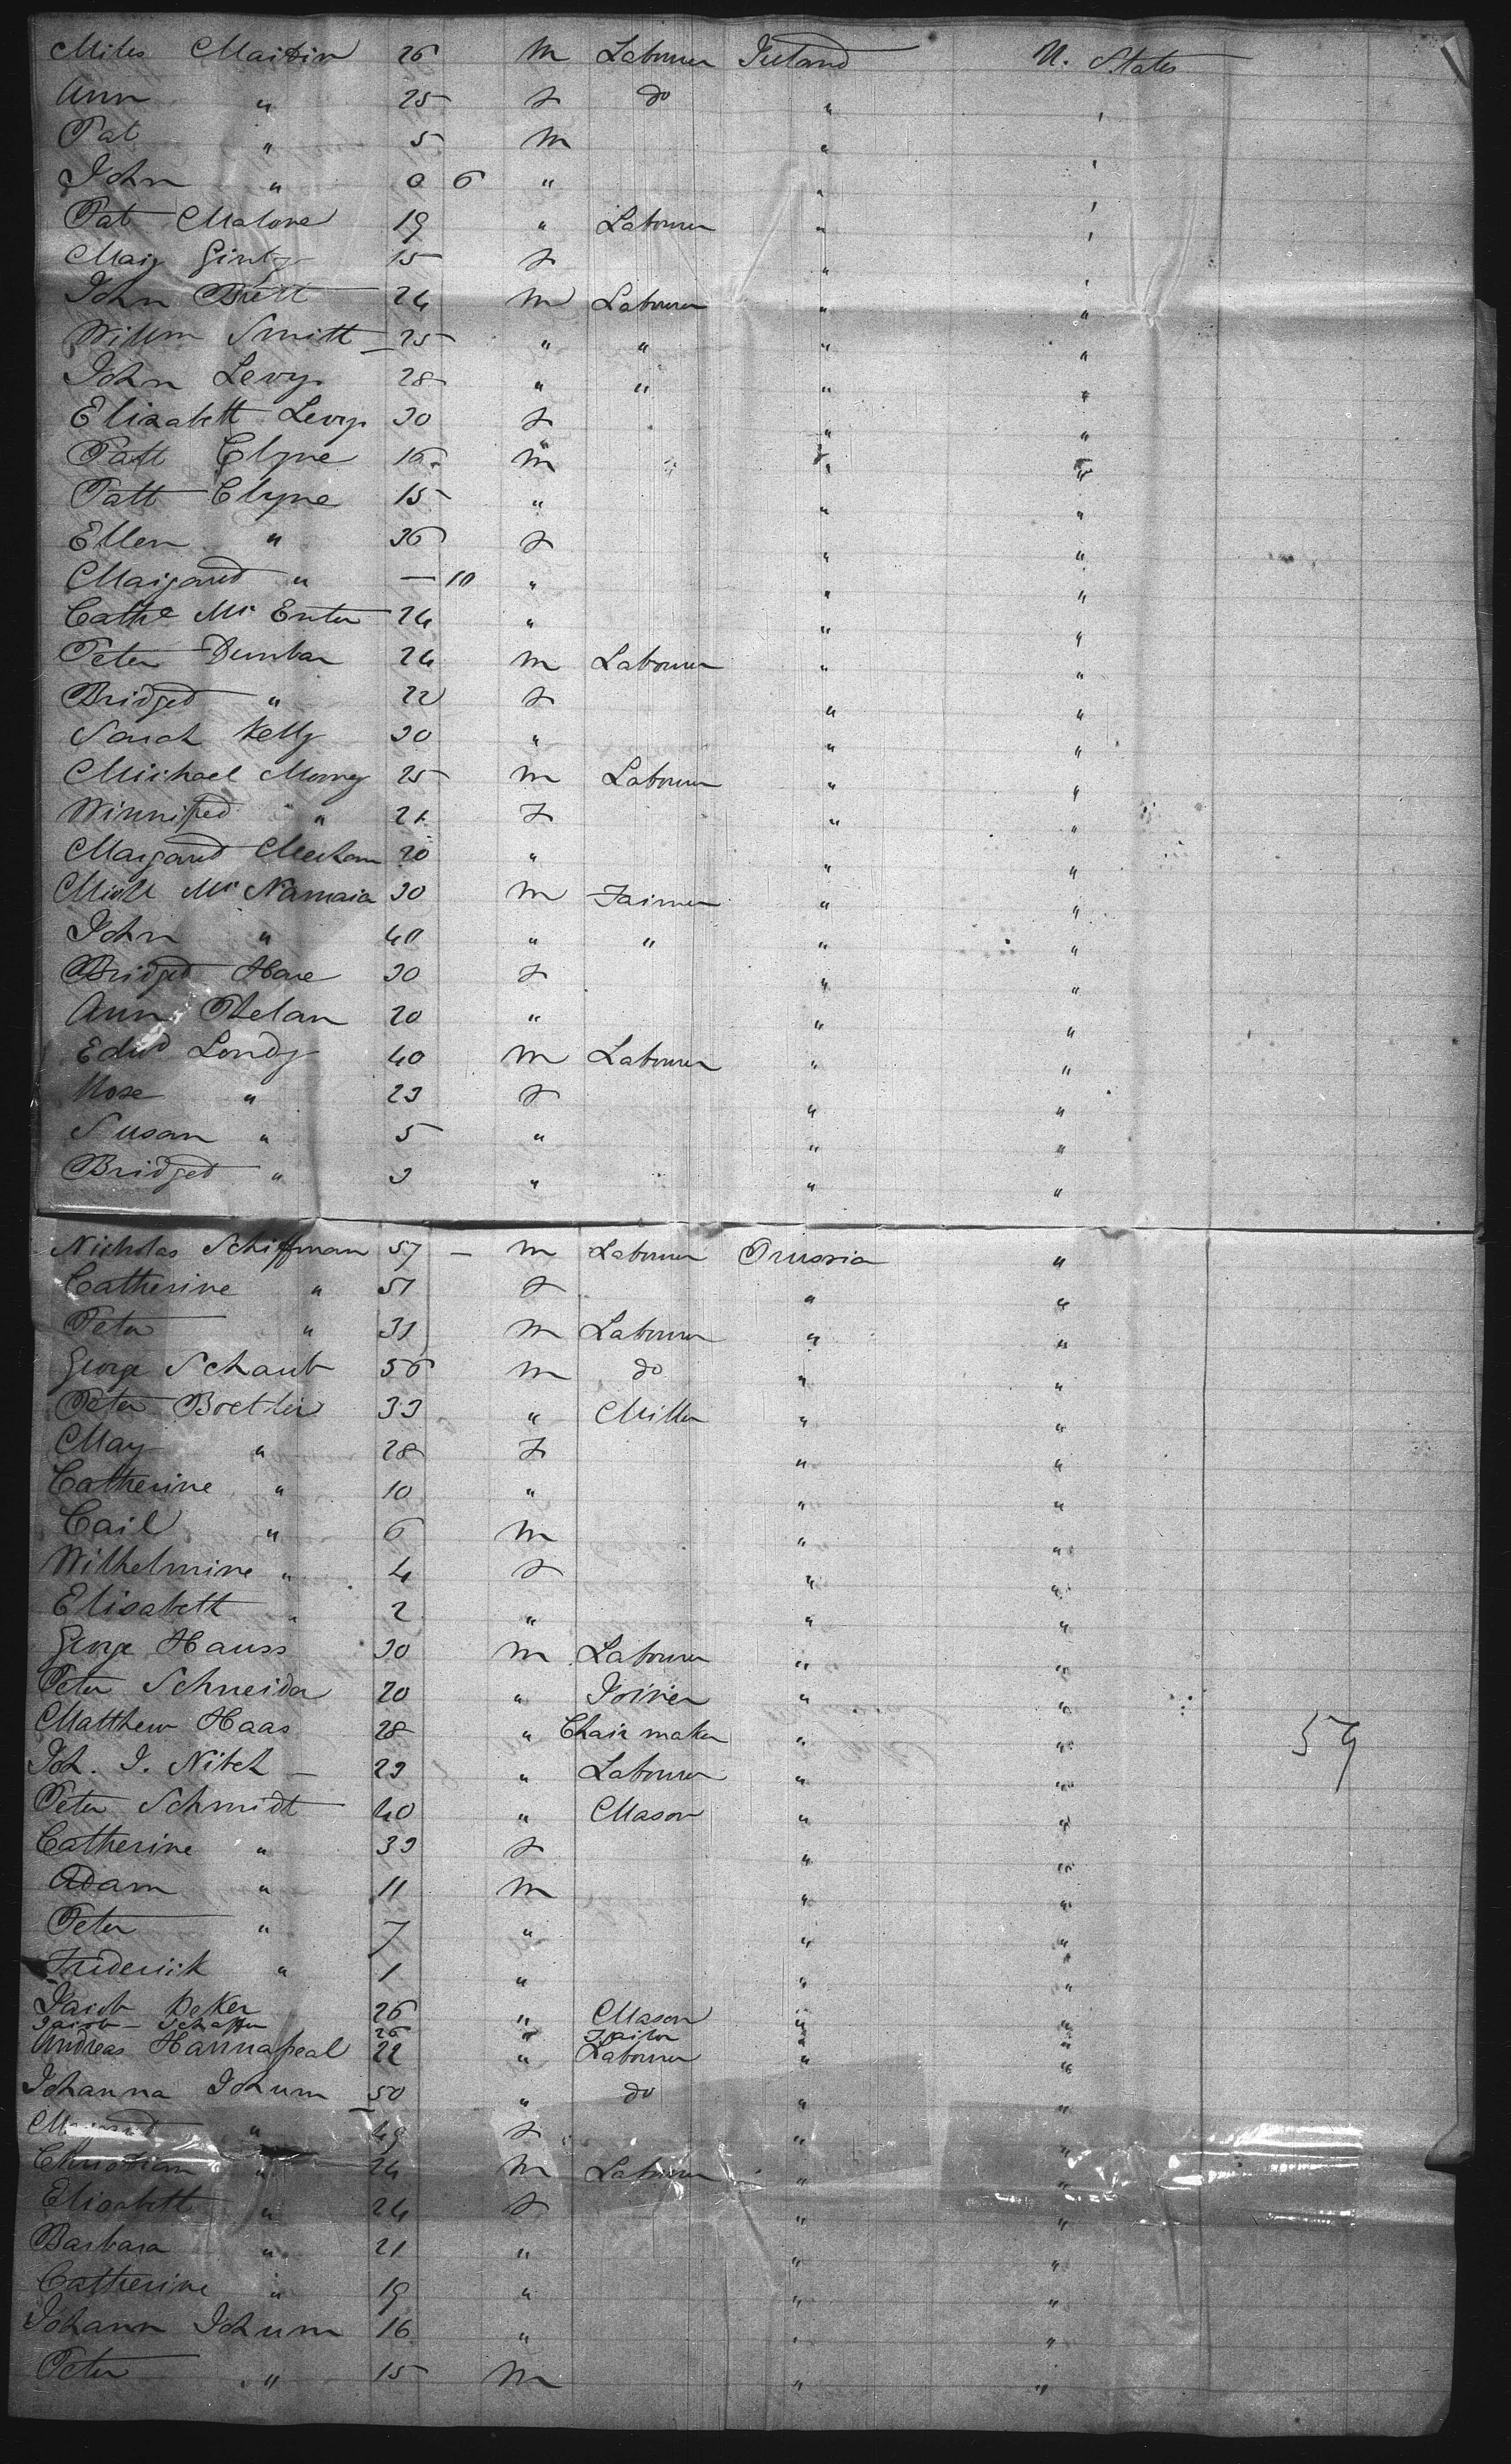 Miles Martin 26 m Labourer Ireland U. States
Ann " 25 f do " '
Pat " 5 m " '
John " 0 6 " " '
Pat Malone 19 " Labourer " '
Mary Ginty 15 f " '
John Brett 24 m Labourer " "
Willm Smith 25 " " " "
John Levy 28 " " " "
Elisabeth Levy 30 f " "
Patt Clyne 16 m " "
Patt Clyne 15 " " "
Ellen " 36 f " "
Margared " — 10 " " "
Cathe Mc Enter 24 " " "
Peter Dunbar 24 m Labourer " "
Bridged " 22 f " "
Sarah Kelly 30 " " "
Michael Morney 25 m Labourer " "
Winnifred " 21 f " "
Margared Meehan 20 " " "
Michl Mc Namara 30 m Farmer " "
John " 40 " " " "
Bridged Hare 30 f " "
Ann Phelan 20 " " "
Edwd Londy 40 m Labourer " "
Rose " 23 f " "
Susan " 5 " " "
Bridged " 3 " " "
Nicholas Schiffman 57 — m Labourer Prussia "
Catherine " 51 f " "
Peter " 31 m Labourer " "
George Schaub 56 m do " "
Peter Boettler 33 " Miller " "
Mary " 28 f " "
Catherine " 10 " " "
Carl " 6 m " "
Wilhelmine " 4 f " "
Elisabeth " 2 " " "
George Hauss 30 m Labourer " "
Peter Schneider 20 " Joiner " "
Matthew Haas 28 " Chair maker " " 59
Joh. J. Nitch — 23 " Labourer " "
Peter Schmidt 40 " Mason " "
Catherine " 33 f " "
Adam " 11 m " "
Peter " 7 " " "
Frederick " 1 " " "
Jacob Deker 26 " Mason " "
Jacob Schaffer 26 " Tailor " "
Andreas Hannapeal 22 " Labourer " "
Johanna Johum 50 " do " "
Margared " 49 f " "
Christian " 24 m Labourer " "
Elisabeth " 24 f " "
Barbara " 21 " " "
Catherine " 19 " " "
Johann Johum 16 " " "
Peter " 15 m " "